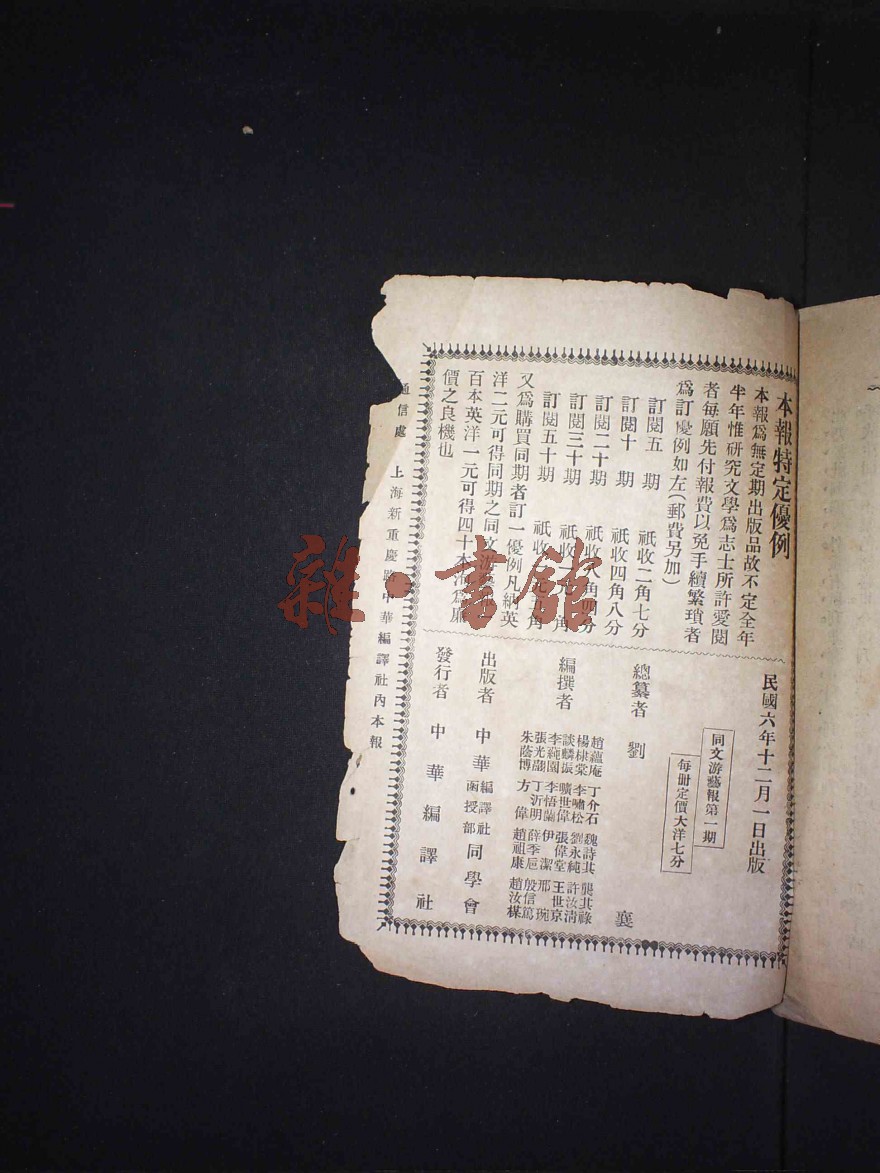 本報特定優例
本報爲無定期出版品故不定全年
半年惟研究文學爲志士所許愛閱
者每願先付報費以免手續繁瑣者
爲訂優例如左(郵費另加)
訂閱五期 祇收二角七分
訂閱十期 祇收四角八分
訂閱二十期 祇收八角四分
訂閱三十期 祇收一元 角
訂閱五十期 祇收 元 角
又爲購買同期者訂一優例凡納英
洋二元可得同期之同文游
百本英洋一元可得四十本洵爲廉
價之良機也
民國六年十二月一日出版
同文游藝報第一期
每冊定價大洋七分
總纂者 劉襄
編撰者
趙蘊庵 丁介石 魏詩其 龔其祿
楊棣棠 李嘯松 劉永純 許汝清
談麟振 曠世偉 張偉堂 王世京
李蒓園 李悟蘭 伊潔 邢琬
張光勵 丁沂明 薛季巵 殷信篤
朱蔭博 方偉 趙祖康 趙汝樸
出版者 中華編譯社函授部同學會
發行者 中華編譯社
通信處 上海新重慶路中華編譯社內本報
雜·書館